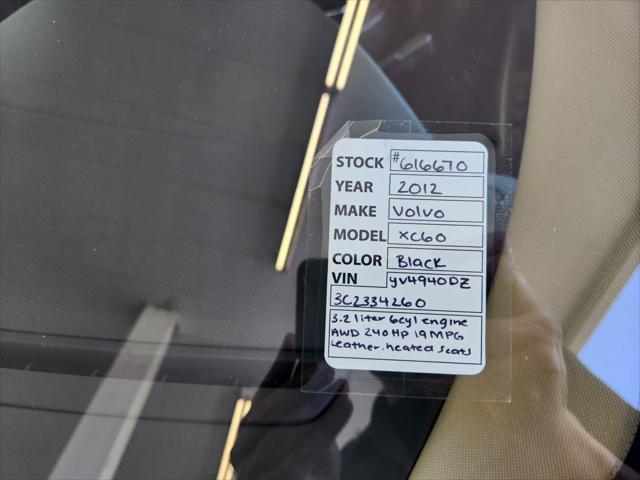 STOCK #616670
YEAR 2012
MAKE VOLVO
MODEL XC60
COLOR Black
VIN YV4940DZ
3C2334260
3.2 liter 6cyl engine
AWD 240 HP 19 MPG
Leather, heated seats